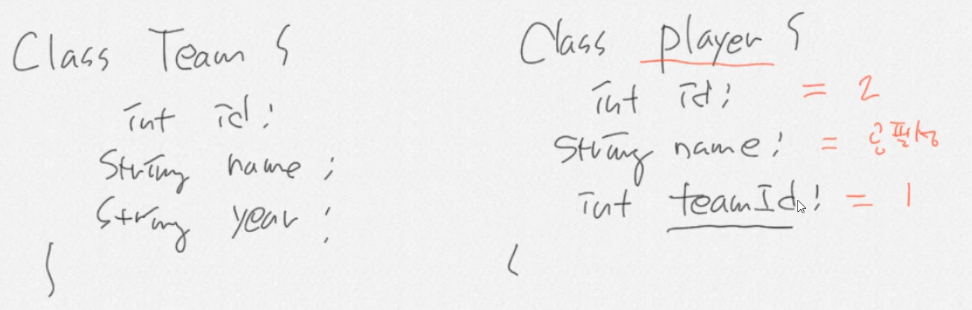 Class Team {
int id;
String name;
String year;
}
Class player {
int id; = 2
String name; = 공필성
int teamId; = 1
}